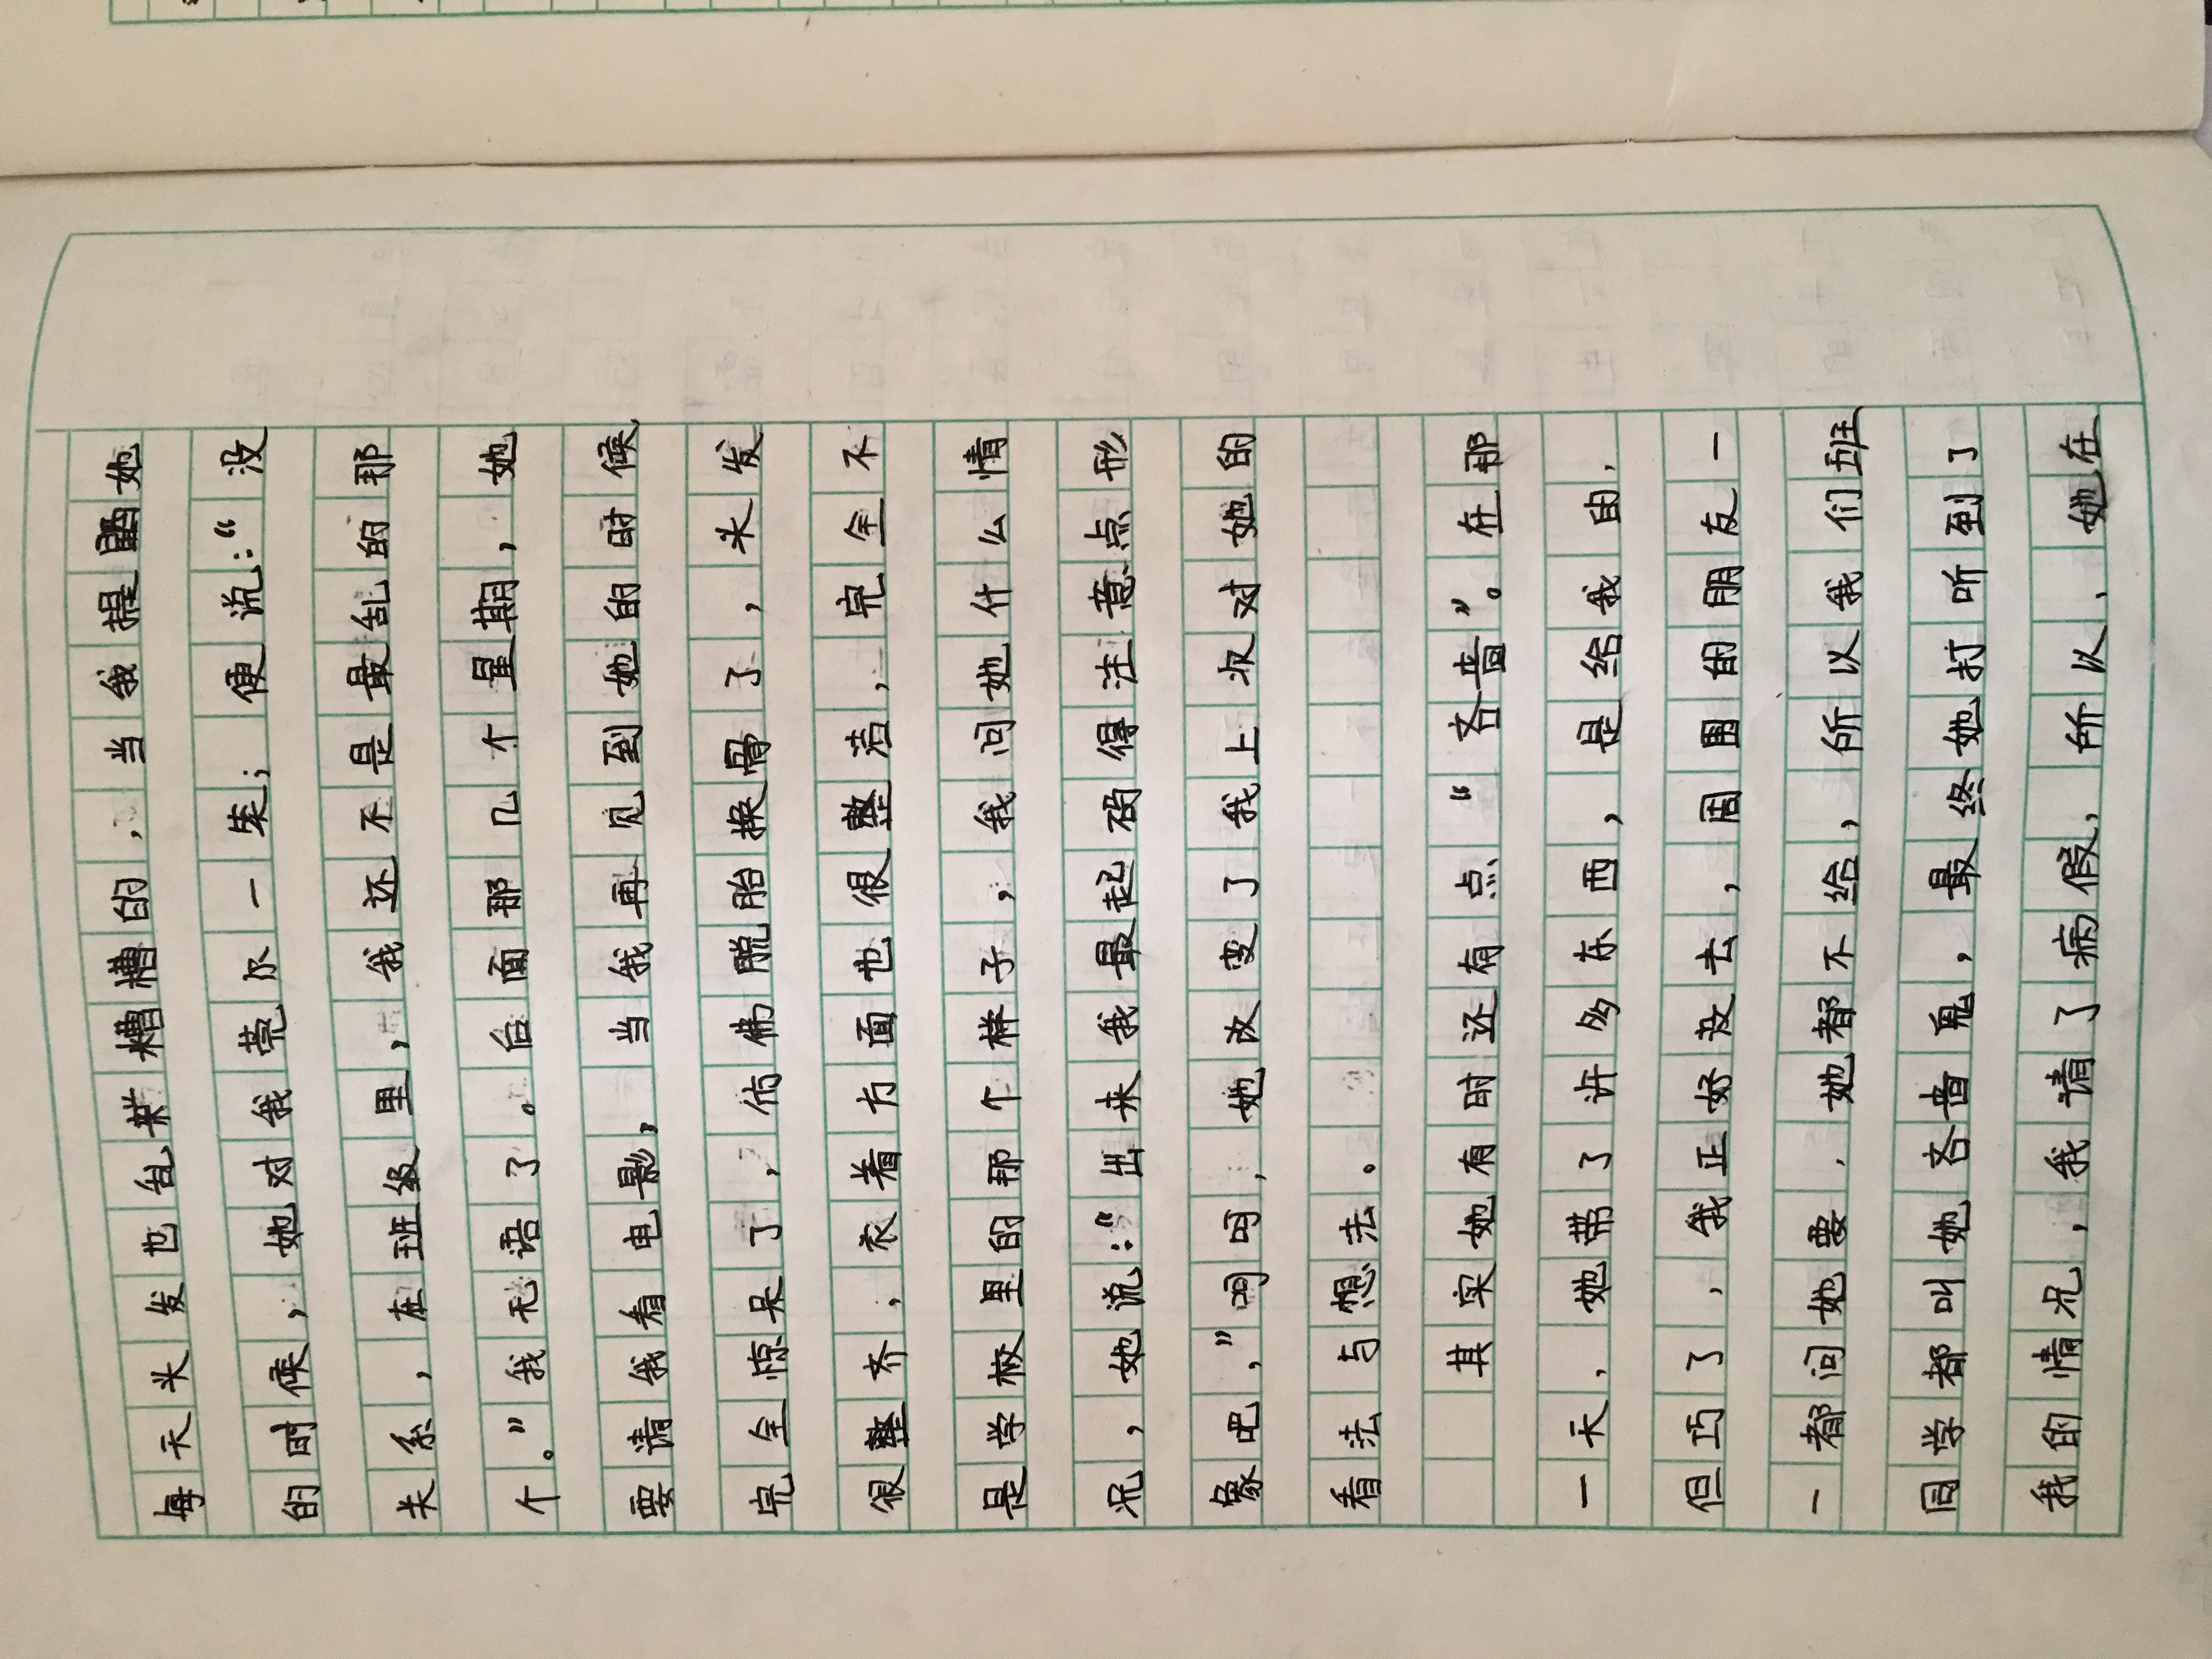 每天头发也乱糟糟的,当我提醒她
的时候,她对我莞尔一笑;便说:“没
关系,在班级里,我还不是最乱的那
个。”我无语了。后面那几个星期,她
要请我看电影,当我再见到她的时候
完全惊呆了,仿佛脱胎换骨了,头发
很整齐,衣着方面也很整洁,完全不
是学校里的那个样子,我问她什么情
况,她说:“出来我最起码得注意点形
象吧,”呵呵,她改变了我上次对她的
看法与想法。
其实她有时还有点“吝啬”。在那
一天,她带了许多东西,是给我的,
但巧了,我正好没去,周围的朋友一
一都问她要,她都不给,所以我们班
同学都叫她吝啬鬼,最终她打听到了
我的情况,我请了病假,所以,她在